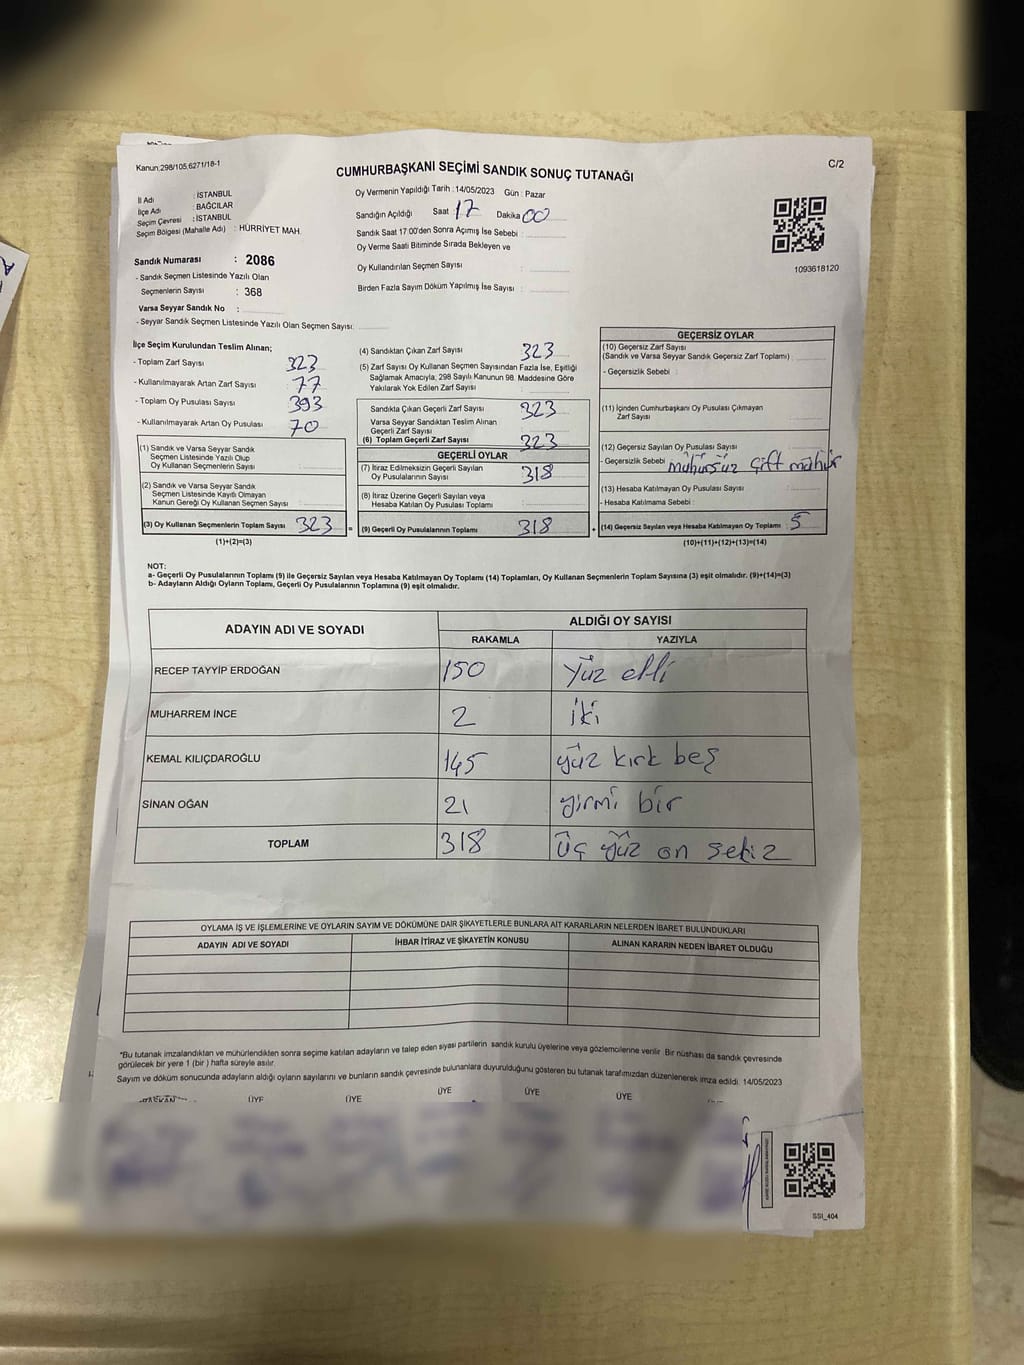 Kanun:298/105,6271/18-1
CUMHURBAŞKANI SEÇİMİ SANDIK SONUÇ TUTANAĞI
C/2
İl Adı : İSTANBUL
İlçe Adı : BAĞCILAR
Seçim Çevresi : İSTANBUL
Seçim Bölgesi (Mahalle Adı) : HÜRRİYET MAH.
Oy Vermenin Yapıldığı Tarih :14/05/2023 Gün : Pazar
Sandığın Açıldığı Saat : 17 Dakika : 00
Sandık Saat 17:00'den Sonra Açımış İse Sebebi :
Oy Verme Saati Bitiminde Sırada Bekleyen ve
Oy Kullandırılan Seçmen Sayısı :
Birden Fazla Sayım Döküm Yapılmış İse Sayısı :
1093618120
Sandık Numarası : 2086
- Sandık Seçmen Listesinde Yazılı Olan
Seçmenlerin Sayısı : 368
Varsa Seyyar Sandık No :
- Seyyar Sandık Seçmen Listesinde Yazılı Olan Seçmen Sayısı:
İlçe Seçim Kurulundan Teslim Alınan;
- Toplam Zarf Sayısı 323
- Kullanılmayarak Artan Zarf Sayısı 77
- Toplam Oy Pusulası Sayısı 393
- Kullanılmayarak Artan Oy Pusulası 70
(1) Sandık ve Varsa Seyyar Sandık
Seçmen Listesinde Yazılı Olup
Oy Kullanan Seçmenlerin Sayısı :
(2) Sandık ve Varsa Seyyar Sandık
Seçmen Listesinde Kayıtlı Olmayan
Kanun Gereği Oy Kullanan Seçmen Sayısı :
(3) Oy Kullanan Seçmenlerin Toplam Sayısı 323
(1)+(2)=(3)
(4) Sandıktan Çıkan Zarf Sayısı 323
(5) Zarf Sayısı Oy Kullanan Seçmen Sayısından Fazla İse, Eşitliği
Sağlamak Amacıyla, 298 Sayılı Kanunun 98. Maddesine Göre
Yakılarak Yok Edilen Zarf Sayısı :
Sandıkta Çıkan Geçerli Zarf Sayısı 323
Varsa Seyyar Sandıktan Teslim Alınan
Geçerli Zarf Sayısı :
(6) Toplam Geçerli Zarf Sayısı 323
GEÇERLİ OYLAR
(7) İtiraz Edilmeksizin Geçerli Sayılan
Oy Pusulalarının Sayısı 318
(8) İtiraz Üzerine Geçerli Sayılan veya
Hesaba Katılan Oy Pusulası Toplamı :
= (9) Geçerli Oy Pusulalarının Toplamı 318 +
GEÇERSİZ OYLAR
(10) Geçersiz Zarf Sayısı
(Sandık ve Varsa Seyyar Sandık Geçersiz Zarf Toplamı) :
- Geçersizlik Sebebi :
(11) İçinden Cumhurbaşkanı Oy Pusulası Çıkmayan
Zarf Sayısı :
(12) Geçersiz Sayılan Oy Pusulası Sayısı :
- Geçersizlik Sebebi mühürsüz çift mühür
(13) Hesaba Katılmayan Oy Pusulası Sayısı :
- Hesaba Katılmama Sebebi :
(14) Geçersiz Sayılan veya Hesaba Katılmayan Oy Toplamı : 5
(10)+(11)+(12)+(13)=(14)
NOT:
a- Geçerli Oy Pusulalarının Toplamı (9) ile Geçersiz Sayılan veya Hesaba Katılmayan Oy Toplamı (14) Toplamları, Oy Kullanan Seçmenlerin Toplam Sayısına (3) eşit olmalıdır. (9)+(14)=(3)
b- Adayların Aldığı Oyların Toplamı, Geçerli Oy Pusulalarının Toplamına (9) eşit olmalıdır.
ADAYIN ADI VE SOYADI ALDIĞI OY SAYISI
RAKAMLA YAZIYLA
RECEP TAYYİP ERDOĞAN 150 Yüz elli
MUHARREM İNCE 2 iki
KEMAL KILIÇDAROĞLU 145 yüz kırk beş
SİNAN OĞAN 21 yirmi bir
TOPLAM 318 Üç yüz on sekiz
OYLAMA İŞ VE İŞLEMLERİNE VE OYLARIN SAYIM VE DÖKÜMÜNE DAİR ŞİKAYETLERLE BUNLARA AİT KARARLARIN NELERDEN İBARET BULUNDUKLARI
ADAYIN ADI VE SOYADI İHBAR İTİRAZ VE ŞİKAYETİN KONUSU ALINAN KARARIN NEDEN İBARET OLDUĞU
*Bu tutanak imzalandıktan ve mühürlendikten sonra seçime katılan adayların ve talep eden siyasi partilerin sandık kurulu üyelerine veya gözlemcilerine verilir. Bir nüshası da sandık çevresinde
görülecek bir yere 1 (bir ) hafta süreyle asılır.
Sayım ve döküm sonucunda adayların aldığı oyların sayılarını ve bunların sandık çevresinde bulunanlara duyurulduğunu gösteren bu tutanak tarafımızdan düzenlenerek imza edildi. 14/05/2023
BAŞKAN ÜYE ÜYE ÜYE ÜYE ÜYE
SSI_404